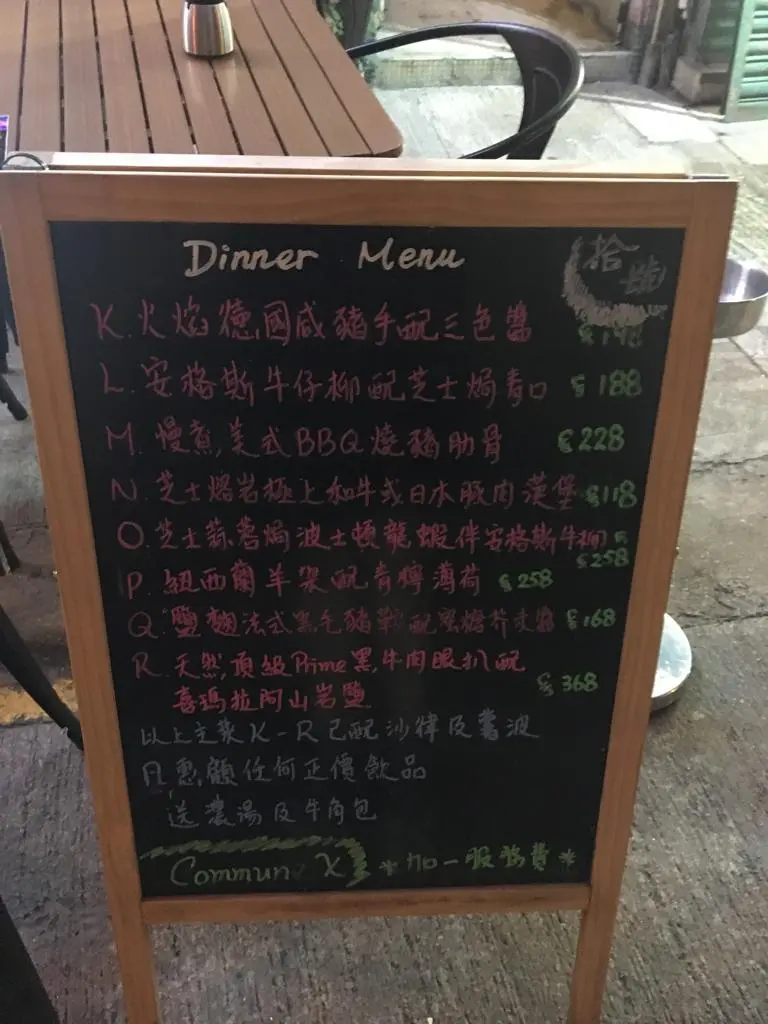 Dinner Menu
拾號
K. 火焰德國咸豬手配三色醬
L. 安格斯牛仔柳配芝士焗青口 $188
M. 慢煮美式BBQ燒豬肋骨 $228
N. 芝士熔岩極上和牛或日本豚肉漢堡 $118
O. 芝士蒜蓉焗波士頓龍蝦伴安格斯牛柳
$258
P. 紐西蘭羊架配青檸薄荷 $258
Q. 鹽麴法式黑毛豬鞍配蜜糖芥末醬 $168
R. 天然頂級Prime黑牛肉眼扒配
喜瑪拉阿山岩鹽 $368
以上主菜K-R已配沙律及薯波
凡惠顧任何正價飲品
送濃湯及牛角包
Commune X *加一服務費*